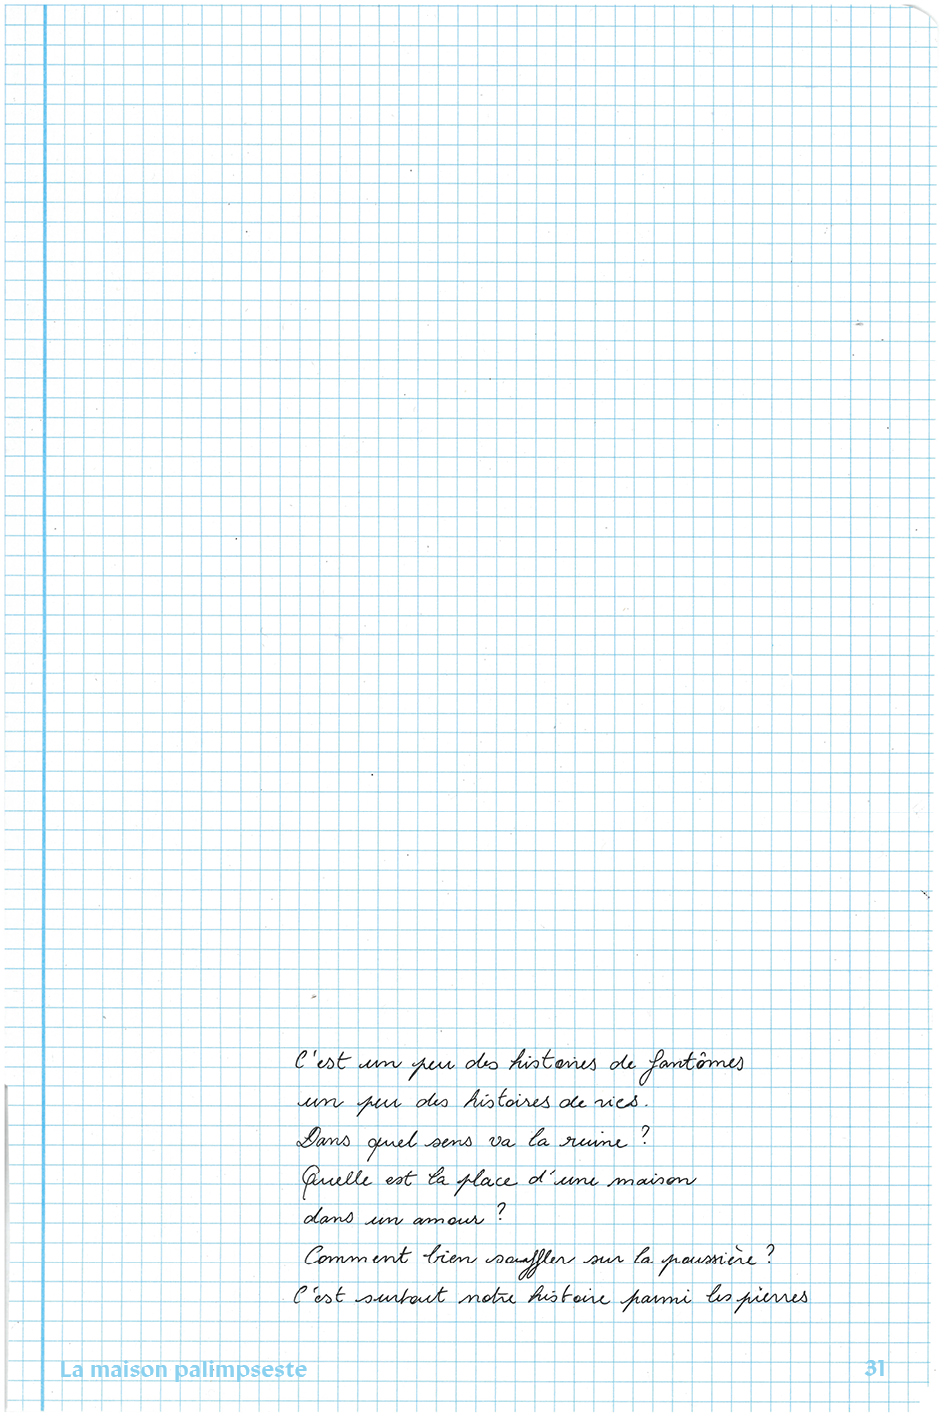 C'est un peu des histoires de fantômes
un peu des histoires de vies.
Dans quel sens va la ruine ?
Quelle est la place d'une maison
dans un amour ?
Comment bien souffler sur la poussière ?
C'est surtout notre histoire parmi les pierres
La maison palimpseste 31